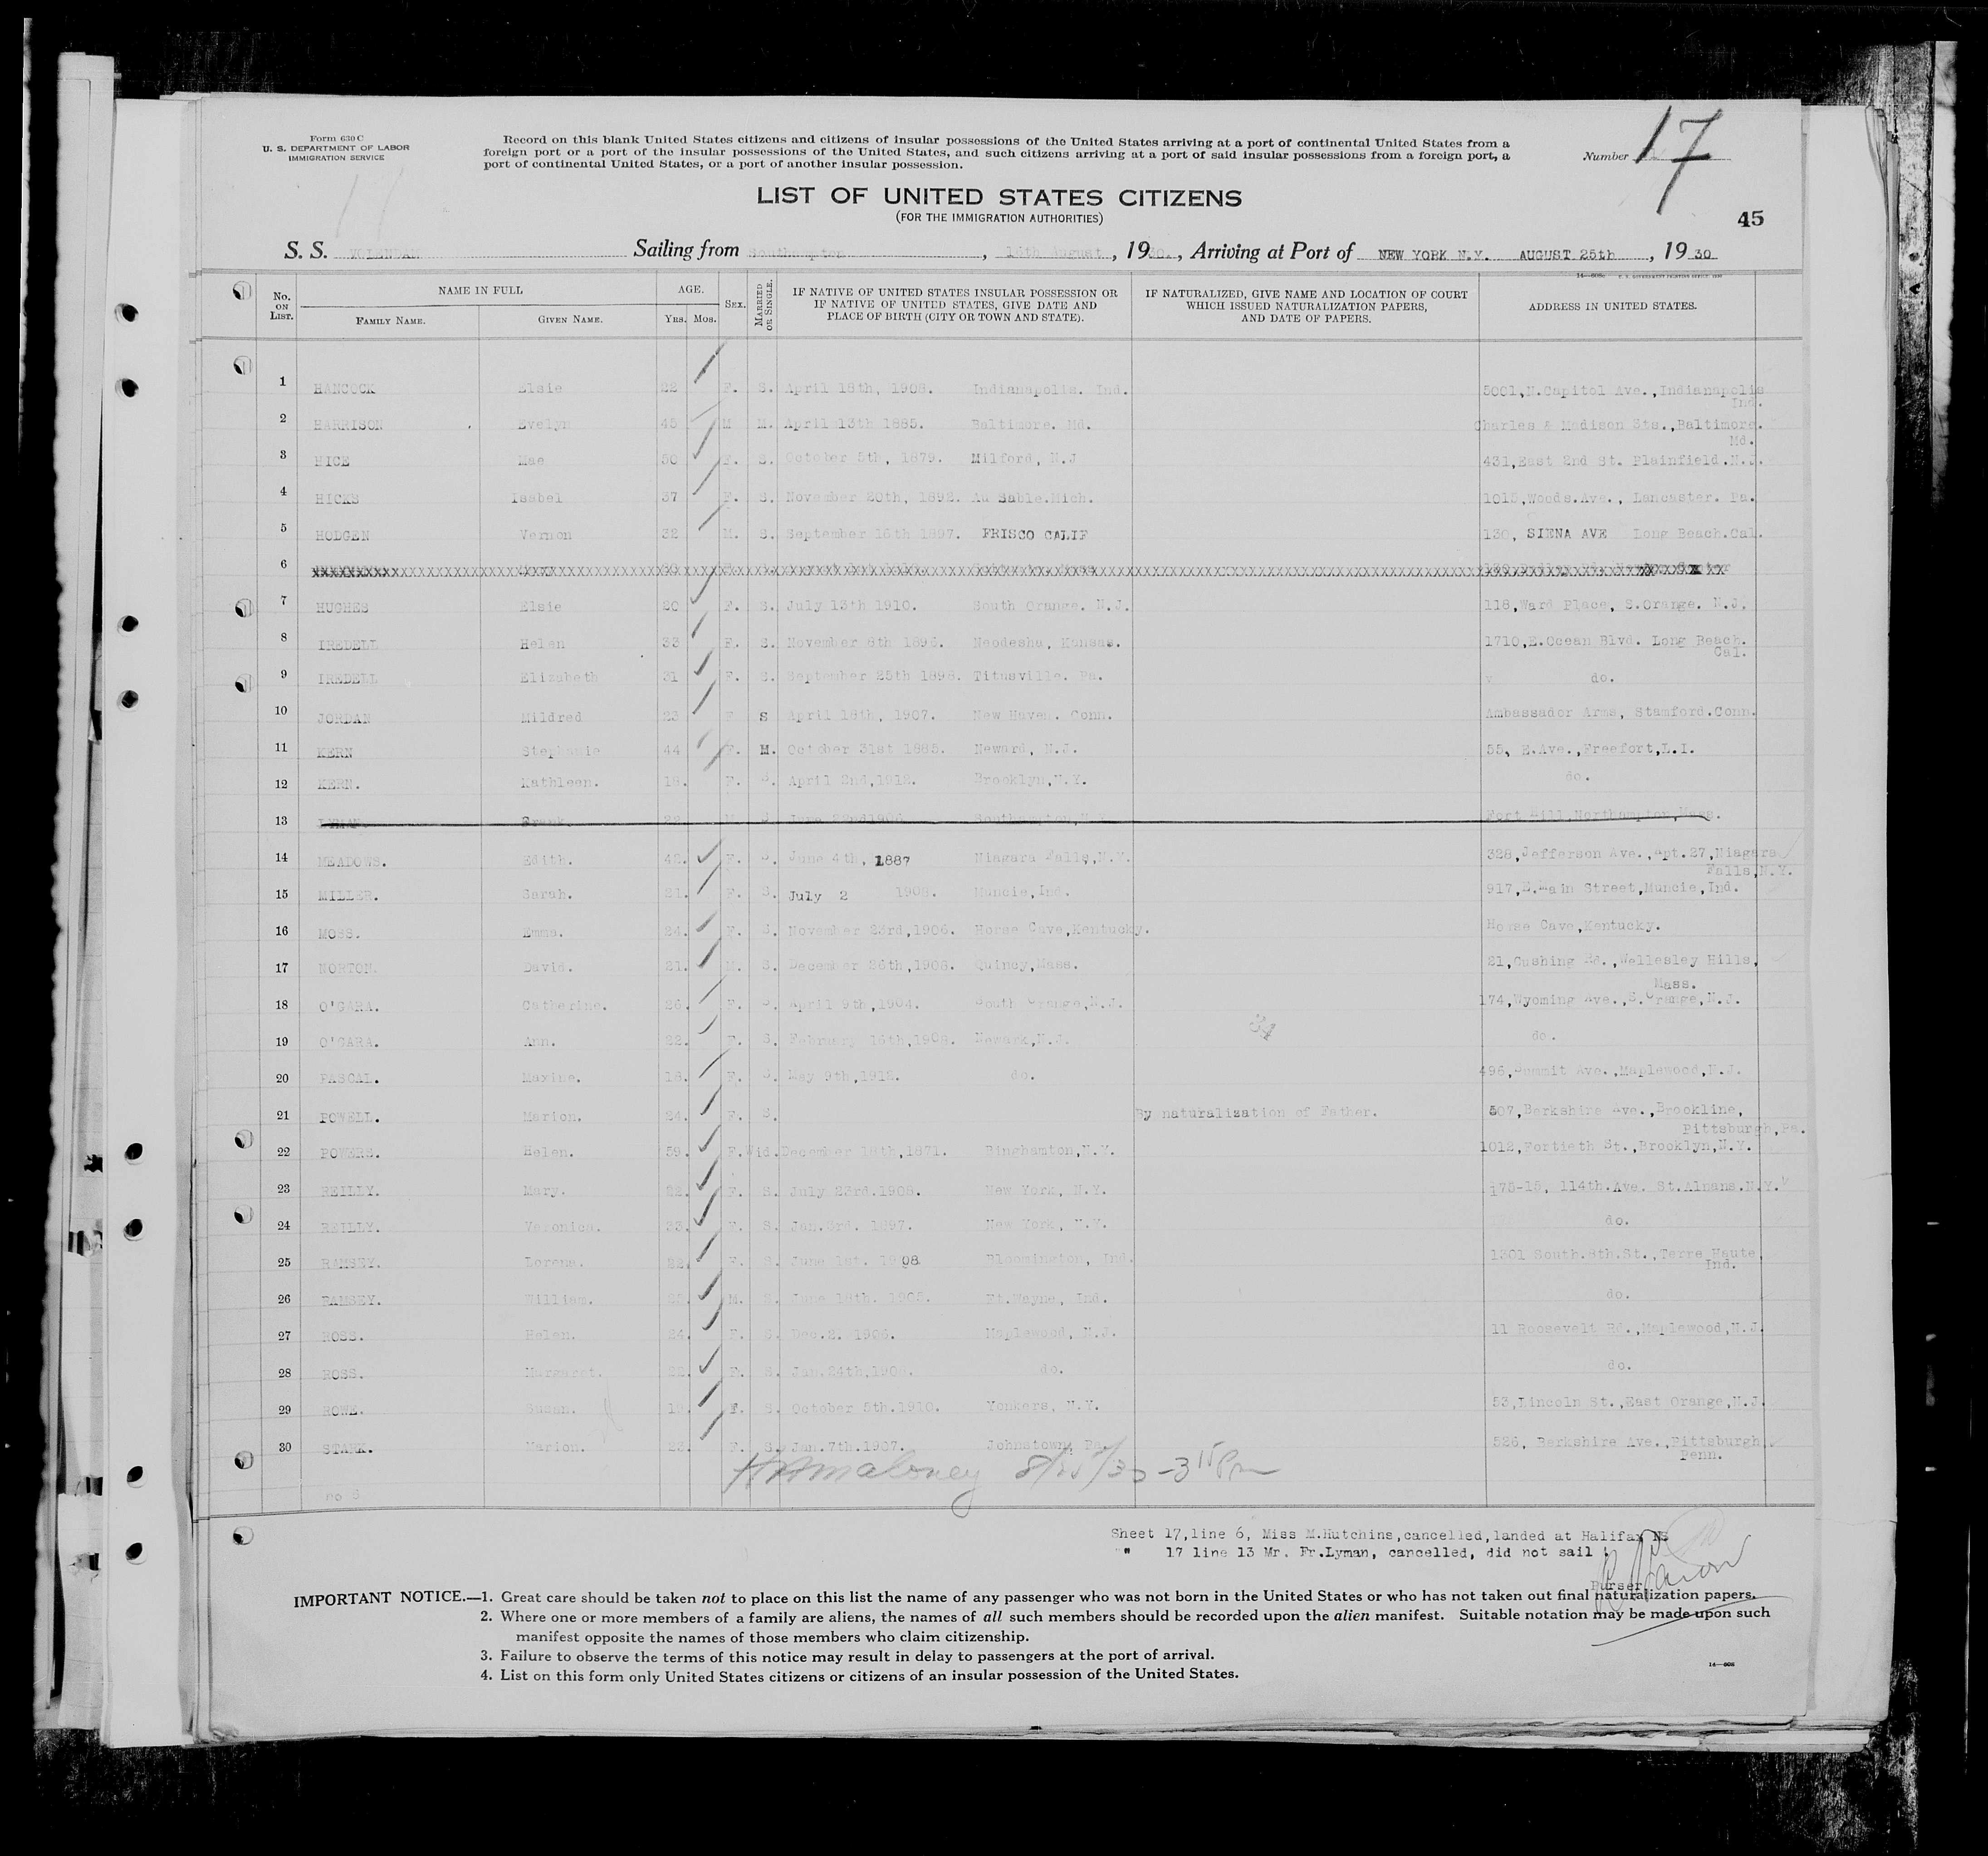 Form 630 C
U. S. DEPARTMENT OF LABOR
IMMIGRATION SERVICE
Record on this blank United States citizens and citizens of insular possessions of the United States arriving at a port of continental United States from a
foreign port or a port of the insular possessions of the United States, and such citizens arriving at a port of said insular possessions from a foreign port, a
port of continental United States, or a port of another insular possession.
Number 17
LIST OF UNITED STATES CITIZENS
(FOR THE IMMIGRATION AUTHORITIES)
45
S. S. VOLENDAM Sailing from Southampton, 16th August, 1930., Arriving at Port of NEW YORK N.Y. AUGUST 25th, 1930
No. ON LIST. NAME IN FULL FAMILY NAME. GIVEN NAME. AGE. YRS. MOS. SEX. MARRIED OR SINGLE. IF NATIVE OF UNITED STATES INSULAR POSSESSION OR IF NATIVE OF UNITED STATES, GIVE DATE AND PLACE OF BIRTH (CITY OR TOWN AND STATE). IF NATURALIZED, GIVE NAME AND LOCATION OF COURT WHICH ISSUED NATURALIZATION PAPERS, AND DATE OF PAPERS. ADDRESS IN UNITED STATES.
1 HANCOCK Elsie 22 F. S. April 18th, 1908. Indianapolis. Ind. 5001,N.Capitol Ave.,Indianapolis Ind.
2 HARRISON Evelyn 45 M M. April 13th 1885. Baltimore. Md. Charles & Madison Sts.,Baltimore. Md.
3 HICE Mae 50 F. S. October 5th, 1879. Milford, N.J 431,East 2nd St. Plainfield.N.J.
4 HICKS Isabel 37 F. S. November 20th, 1892. Au Sable.Mich. 1015,Woods.Ave., Lancaster. Pa.
5 HODGEN Vernon 32 M. S. September 16th 1897. FRISCO CALIF 130, SIENA AVE Long Beach.Cal.
6
7 HUGHES Elsie 20 F. S. July 13th 1910. South Orange. N.J. 118,Ward Place, S.Orange. N.J.
8 IREDELL Helen 33 F. S. November 8th 1896. Neodesha, Kansas. 1710,E.Ocean Blvd. Long Beach. Cal.
9 IREDELL Elizabeth 31 F. S. September 25th 1898. Titusville. Pa. do.
10 JORDAN Mildred 23 F S April 18th, 1907. New Haven. Conn. Ambassador Arms, Stamford.Conn.
11 KERN Stephanie 44 F. M. October 31st 1885. Neward, N.J. 55, E.Ave.,Freefort,L.I.
12 KERN. Kathleen. 18. F. S. April 2nd,1912. Brooklyn,N.Y. do.
13 LYMAN. Frank. 22. M. S. Fort Hill,Northampton,Mass.
14 MEADOWS. Edith. 42. F. S. June 4th, 1887 Niagara Falls,N.Y. 328,Jefferson Ave.,Apt.27,Niagara Falls,N.Y.
15 MILLER. Sarah. 21. F. S. July 2 1908. Muncie,Ind. 917,E.Main Street,Muncie,Ind.
16 MOSS. Emma. 24. F. S. November 23rd,1906. Horse Cave,Kentucky. Horse Cave,Kentucky.
17 NORTON. David. 21. M. S. December 26th,1908. Quincy,Mass. 21,Cushing Rd.,Wellesley Hills, Mass.
18 O'GARA. Catherine. 26. F. S. April 9th,1904. South Orange,N.J. 174,Wyoming Ave.,S.Orange,N.J.
19 O'GARA. Ann. 22. F. S. February 16th,1908. Newark,N.J. do.
20 PASCAL. Maxine. 18. F. S. May 9th,1912. do. 496,Summit Ave.,Maplewood,N.J.
21 POWELL. Marion. 24. F. S. By naturalization of Father. 507,Berkshire Ave.,Brookline, Pittsburgh,Pa.
22 POWERS. Helen. 59. F. Wid. December 18th,1871. Binghamton,N.Y. 1012,Fortieth St.,Brooklyn,N.Y.
23 REILLY. Mary. 22. F. S. July 23rd.1908. New York, N.Y. 175-15, 114th.Ave. St.Alnans.N.Y.
24 REILLY. Veronica. 33. F. S. Jan.3rd. 1897. New York, N.Y. do.
25 RAMSEY. Lorena. 22. F. S. June 1st. 1908 Bloomington, Ind. 1301 South.8th.St.,Terre Haute, Ind.
26 RAMSEY. William. 25. M. S. June 18th. 1905. Ft.Wayne, Ind. do.
27 ROSS. Helen. 24. F. S. Dec.2. 1906. Maplewood, N.J. 11 Roosevelt Rd.,Maplewood,N.J.
28 ROSS. Margaret. 22. F. S. Jan.24th,1908. do. do.
29 ROWE. Susan. 19. F. S. October 5th.1910. Yonkers, N.Y. 53,Lincoln St.,East Orange,N.J.
30 STARK. Marion. 23. F. S. Jan.7th.1907. Johnstown, Pa. 526, Berkshire Ave.,Pittsburgh, Penn.
HAMaloney 8/25/30 - 3 15 Pm
no 6
Sheet 17,line 6, Miss M.Hutchins,cancelled,landed at Halifax NS
" 17 line 13 Mr. Fr.Lyman, cancelled, did not sail.
Purser
IMPORTANT NOTICE.—1. Great care should be taken not to place on this list the name of any passenger who was not born in the United States or who has not taken out final naturalization papers.
2. Where one or more members of a family are aliens, the names of all such members should be recorded upon the alien manifest. Suitable notation may be made upon such
manifest opposite the names of those members who claim citizenship.
3. Failure to observe the terms of this notice may result in delay to passengers at the port of arrival.
4. List on this form only United States citizens or citizens of an insular possession of the United States.